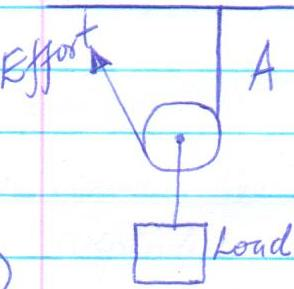 Effort
A
Load